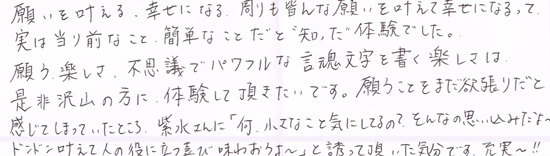 願いを叶える、幸せになる、周りも皆んな願いを叶えて幸せになるって、
実は当り前なこと、簡単なことだと"知った"体験でした。
願う楽しさ、不思議でパワフルな言魂文字を書く楽しさは、
是非沢山の方に、体験して頂きたいです。願うことをまだ欲張りだと
感じてしまっていたところ、紫水さんに「何、小さなこと気にしてるの?そんなの思い込みだよ〜
ドンドン叶えて人の役に立つ喜び味わおうよ〜」と誘って頂いた気分です。充実〜!!